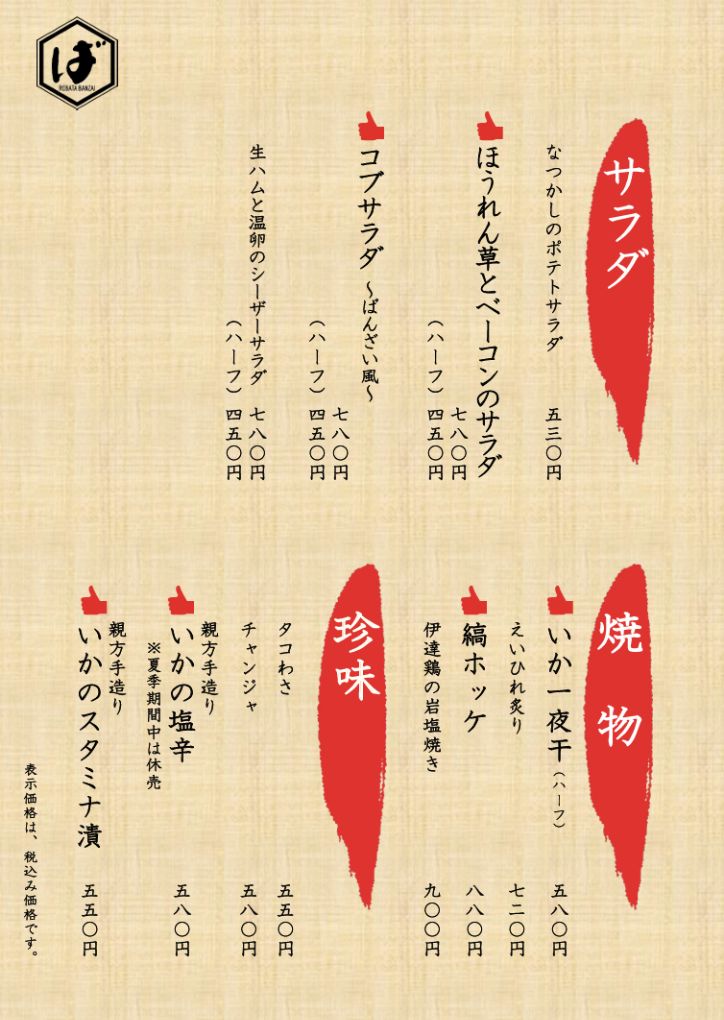 ば
ROBATA BANZAI
サラダ
なつかしのポテトサラダ 五三〇円
ほうれん草とベーコンのサラダ
七八〇円
(ハーフ) 四五〇円
コブサラダ ～ばんざい風～
七八〇円
(ハーフ) 四五〇円
生ハムと温卵のシーザーサラダ 七八〇円
(ハーフ) 四五〇円
焼物
いか一夜干(ハーフ) 五八〇円
えいひれ炙り 七二〇円
縞ホッケ 八八〇円
伊達鶏の岩塩焼き 九〇〇円
珍味
タコわさ 五五〇円
チャンジャ 五八〇円
親方手造り
いかの塩辛 五八〇円
※夏季期間中は休売
親方手造り
いかのスタミナ漬 五五〇円
表示価格は、税込み価格です。